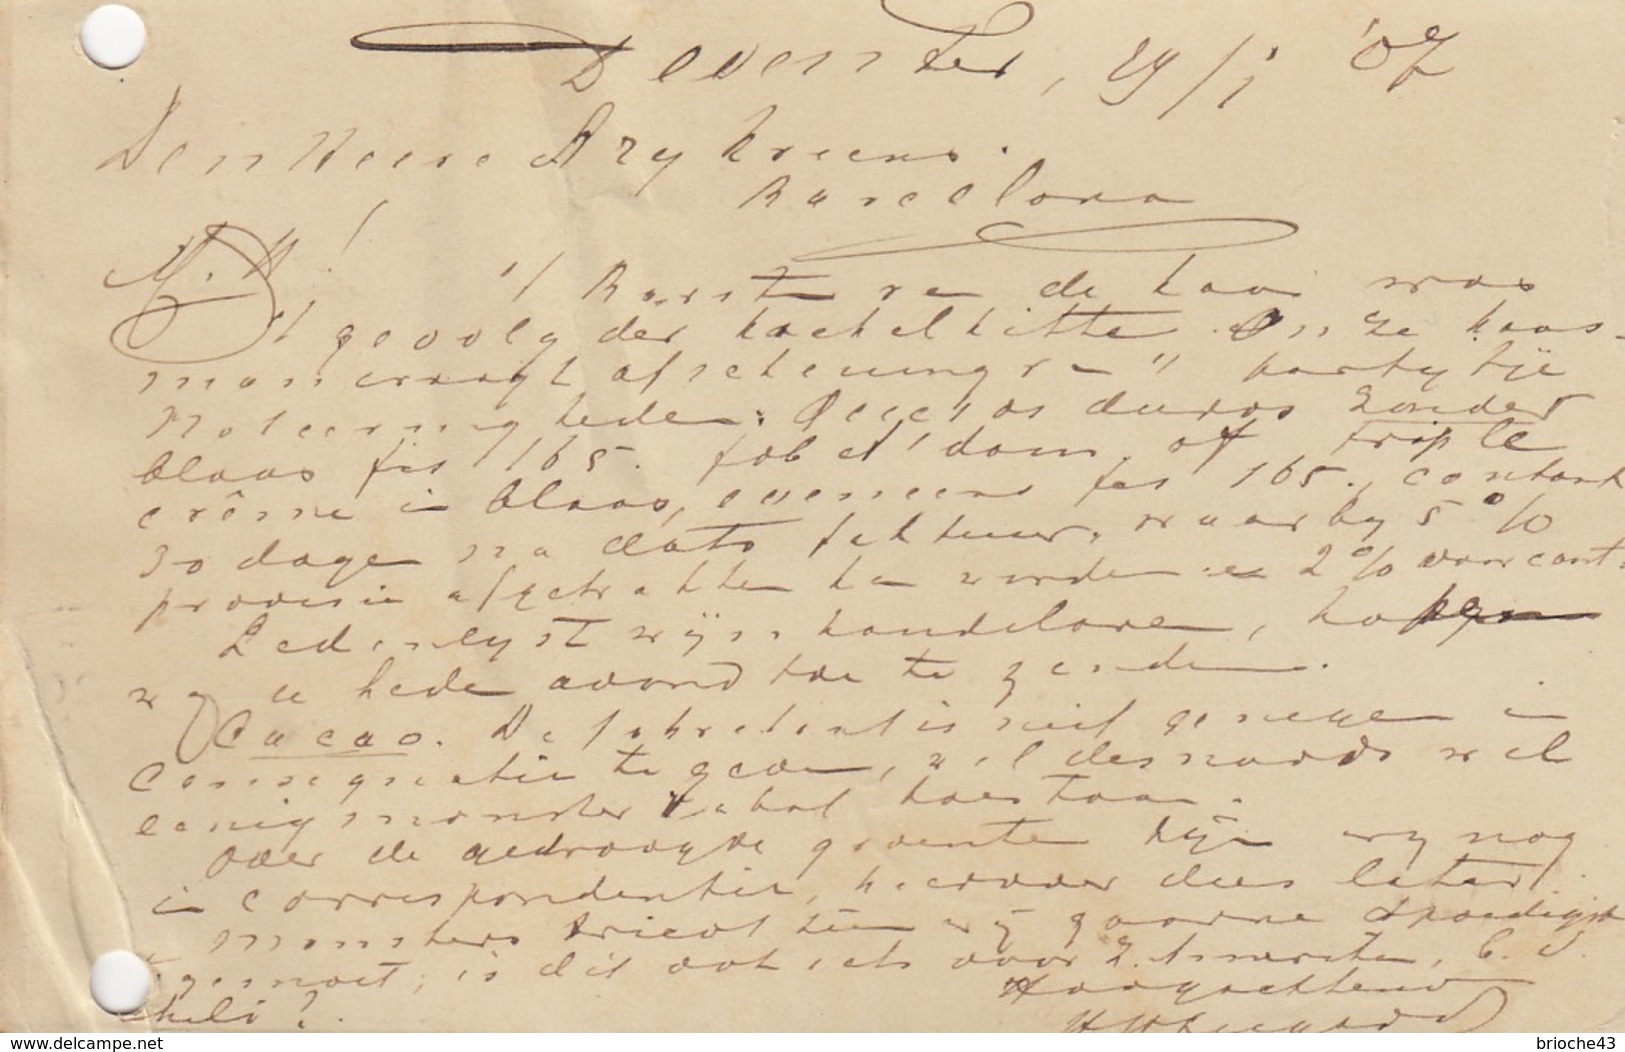 Deventer, 29/1 '07
Den Heere Ary Kreens.
Barcelona
M. H!
't Barsten van de kaas was
't gevolg der kachelhitte. Onze kaas-
man vraagt afrekening van 't partytje
Noteering heden: Quesos duros zonder
blaas fs 165. fob A'dam, of triple
crême in blaas, eveneens fs 165., contant
30 dagen na dato faktuur, waarby 5%
provisie afgetrokken kan worden en 2% voor cont.
Ledenlyst wijnhandelaren, hopen
wy u heden avond toe te zenden.
Cacao. De fabrikant is niet genegen in
Consignatie te geven, wel desnoods wel
eenig monster rabat toestaan.
Over de gedroogde groenten zijn wy nog
in correspondentie, hierover dus later.
Monsters tricot zien wij gaarne spoedigst
tegemoet; is dit ook iets voor Z. Amerika, b.v.
Chili?
Hoogachtend